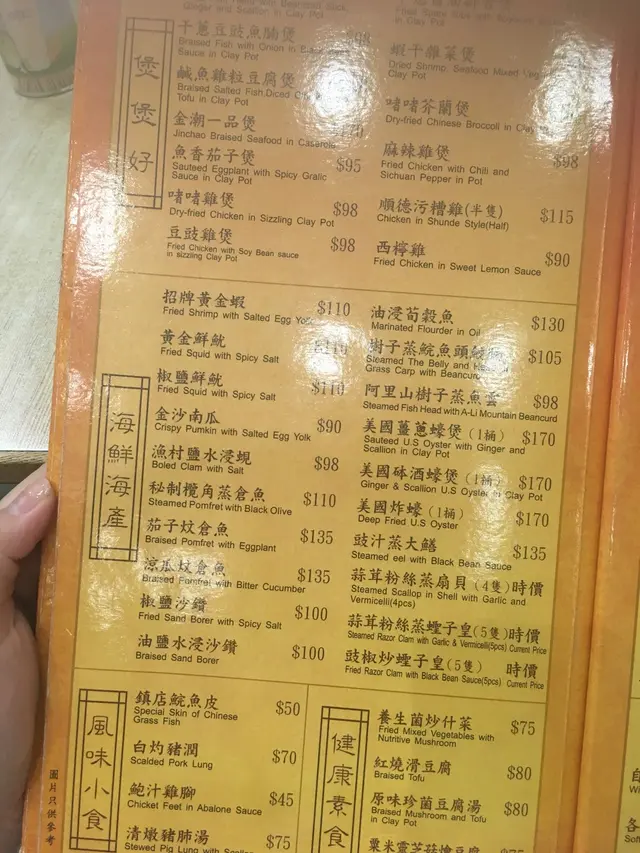 Ginger and Scallion in Clay Pot
煲煲好
干蔥豆豉魚腩煲
Braised Fish with Onion in
Sauce in Clay Pot
鹹魚雞粒豆腐煲
Braised Salted Fish,Diced
Tofu in Clay Pot
金潮一品煲
Jinchao Braised Seafood in Casserole
魚香茄子煲 $95
Sauteed Eggplant with Spicy Gralic
Sauce in Clay Pot
啫啫雞煲 $98
Dry-fried Chicken in Sizzling Clay Pot
豆豉雞煲 $98
Fried Chicken with Soy Bean sauce
in sizzling Clay Pot
蝦干雜菜煲
Dried Shrimp, Seafood Mixed
Clay Pot
啫啫芥蘭煲
Dry-fried Chinese Broccoli in Clay
麻辣雞煲 $98
Fried Chicken with Chili and
Sichuan Pepper in Pot
順德污糟雞(半隻) $115
Chicken in Shunde Style(Half)
西檸雞 $90
Fried Chicken in Sweet Lemon Sauce
海鮮海產
招牌黃金蝦 $110
Fried Shrimp with Salted Egg Yolk
黃金鮮魷 $110
Fried Squid with Spicy Salt
椒鹽鮮魷 $110
Fried Squid with Spicy Salt
金沙南瓜 $90
Crispy Pumkin with Salted Egg Yolk
漁村鹽水浸蜆 $98
Boled Clam with Salt
秘制欖角蒸倉魚 $110
Steamed Pomfret with Black Olive
茄子炆倉魚 $135
Braised Pomfret with Eggplant
涼瓜炆倉魚 $135
Braised Pomfret with Bitter Cucumber
椒鹽沙鑽 $100
Fried Sand Borer with Spicy Salt
油鹽水浸沙鑽 $100
Braised Sand Borer
油浸荀殼魚 $130
Marinated Flourder in Oil
樹子蒸鯇魚頭 $105
Steamed The Belly and
Grass Carp with Beancurd
阿里山樹子蒸魚雲 $98
Steamed Fish Head with A-Li Mountain Beancurd
美國薑蔥蠔煲(1桶) $170
Sauteed U.S Oyster with Ginger and
Scallion in Clay Pot
美國砵酒蠔煲(1桶) $170
Ginger & Scallion U.S Oyster in Clay Pot
美國炸蠔(1桶) $170
Deep Fried U.S Oyster
豉汁蒸大鱔 $135
Steamed eel with Black Bean Sauce
蒜茸粉絲蒸扇貝(4隻)時價
Steamed Scallop in Shell with Garlic and
Vermicelli(4pcs)
蒜茸粉絲蒸蟶子皇(5隻)時價
Steamed Razor Clam with Garlic & Vermicelli(5pcs) Current Price
豉椒炒蟶子皇(5隻) 時價
Fried Razor Clam with Black Bean Sauce(5pcs) Current Price
風味小食
鎮店鯇魚皮 $50
Special Skin of Chinese
Grass Fish
白灼豬潤 $70
Scalded Pork Lung
鮑汁雞腳 $45
Chicket Feet in Abalone Sauce
清燉豬肺湯 $75
Stewed Pig Lung with
健康素食
養生菌炒什菜 $75
Fried Mixed Vegetables with
Nutritive Mushroom
紅燒滑豆腐 $80
Braised Tofu
原味珍菌豆腐湯 $80
Braised Mushroom and Tofu
in Clay Pot
粟米靈芝菇燴豆腐
圖片只供參考